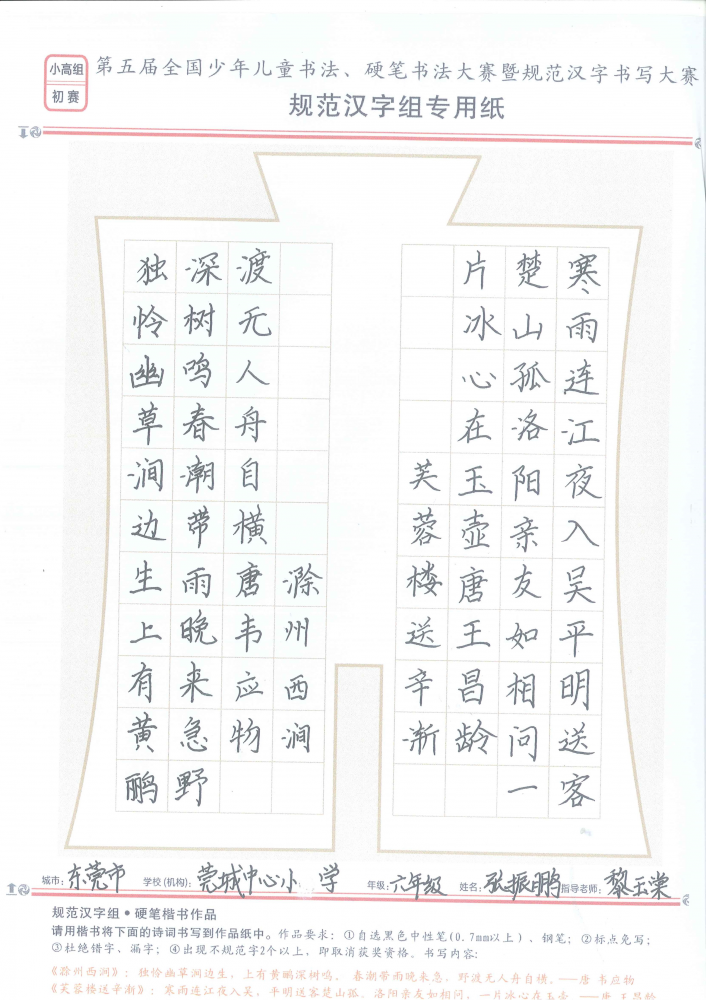 小高组
初赛
第五届全国少年儿童书法、硬笔书法大赛暨规范汉字书写大赛
规范汉字组专用纸
独怜幽草涧边生上有黄鹂
深树鸣春潮带雨晚来急野
渡无人舟自横唐韦应物
滁州西涧
寒雨连江夜入吴平明送客
楚山孤洛阳亲友如相问一
片冰心在玉壶唐王昌龄
芙蓉楼送辛渐
城市：东莞市 学校（机构）：莞城中心小学 年级：六年级 姓名：张振鹏 指导老师：黎玉棠
规范汉字组·硬笔楷书作品
请用楷书将下面的诗词书写到作品纸中。作品要求：①自选黑色中性笔(0.7mm以上)、钢笔；②标点免写；
③杜绝错字、漏字；④出现不规范字2个以上，即取消获奖资格。书写内容：
《滁州西涧》：独怜幽草涧边生，上有黄鹂深树鸣。 春潮带雨晚来急，野渡无人舟自横。——唐 韦应物
《芙蓉楼送辛渐》：寒雨连江夜入吴，平明送客楚山孤。洛阳亲友如相问，一片冰心在玉壶。——唐 王昌龄